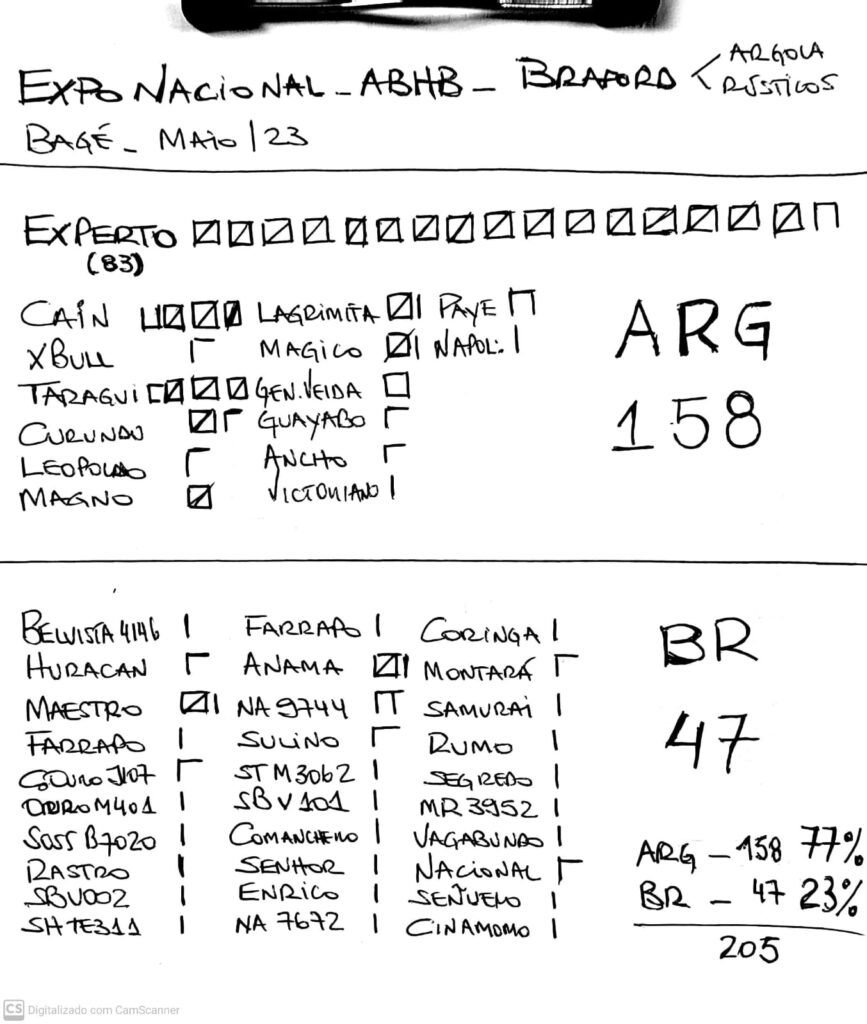 EXPO NACIONAL - ABHB - BRAFORD < ARGOLA
RÚSTICOS
BAGÉ - MAIO/23
EXPERTO
(83)
CAÍN LAGRIMITA PAYE
XBULL MAGICO NAPOL:
TARAGUI GEN.VEIDA
CURUNDU GUAYABO
LEOPOLDO ANCHO
MAGNO VICTORIANO
ARG
158
BELVISTA 4146 FARRAPO CORINGA
HURACAN ANAMA MONTARÁ
MAESTRO NA 9744 SAMURAI
FARRAPO SULINO RUMO
J107 STM3062 SEGREDO
OURO M401 SBV101 MR3952
B7020 COMANCHERO VAGABUNDO
RASTRO SENHOR NACIONAL
SBV002 ENRICO SEÑUELO
SHTE311 NA 7672 CINAMOMO
BR
47
ARG - 158 77%
BR - 47 23%
205
CS Digitalizado com CamScanner